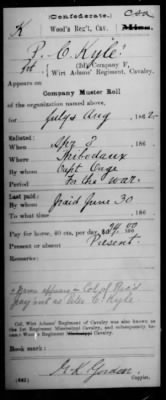 (Confederate.)
K Wood's Reg't, Cav. Miss.
P. C. Kyle
Pvt, (2d) Company F,
Wirt Adams' Regiment, Cavalry.
Appears on
Company Muster Roll
of the organization named above,
for July & Aug, 1862.
Enlisted:
When 8, 186
Where Thibodaux
By whom Capt.
Period for the war.
Last paid:
By whom
To what time June 30, 186
Pay for horse, 40 cts. per day, $24.00
Present or absent Present.
Remarks:
Name appears in Col. of
as C. Kyle
Col. Wirt Adams' Regiment of Cavalry was also known as
the 1st Regiment Mississippi Cavalry, and subsequently became
Wood's Regiment Mississippi Cavalry.
Book mark:
K. Gordon
(642) Copyist.